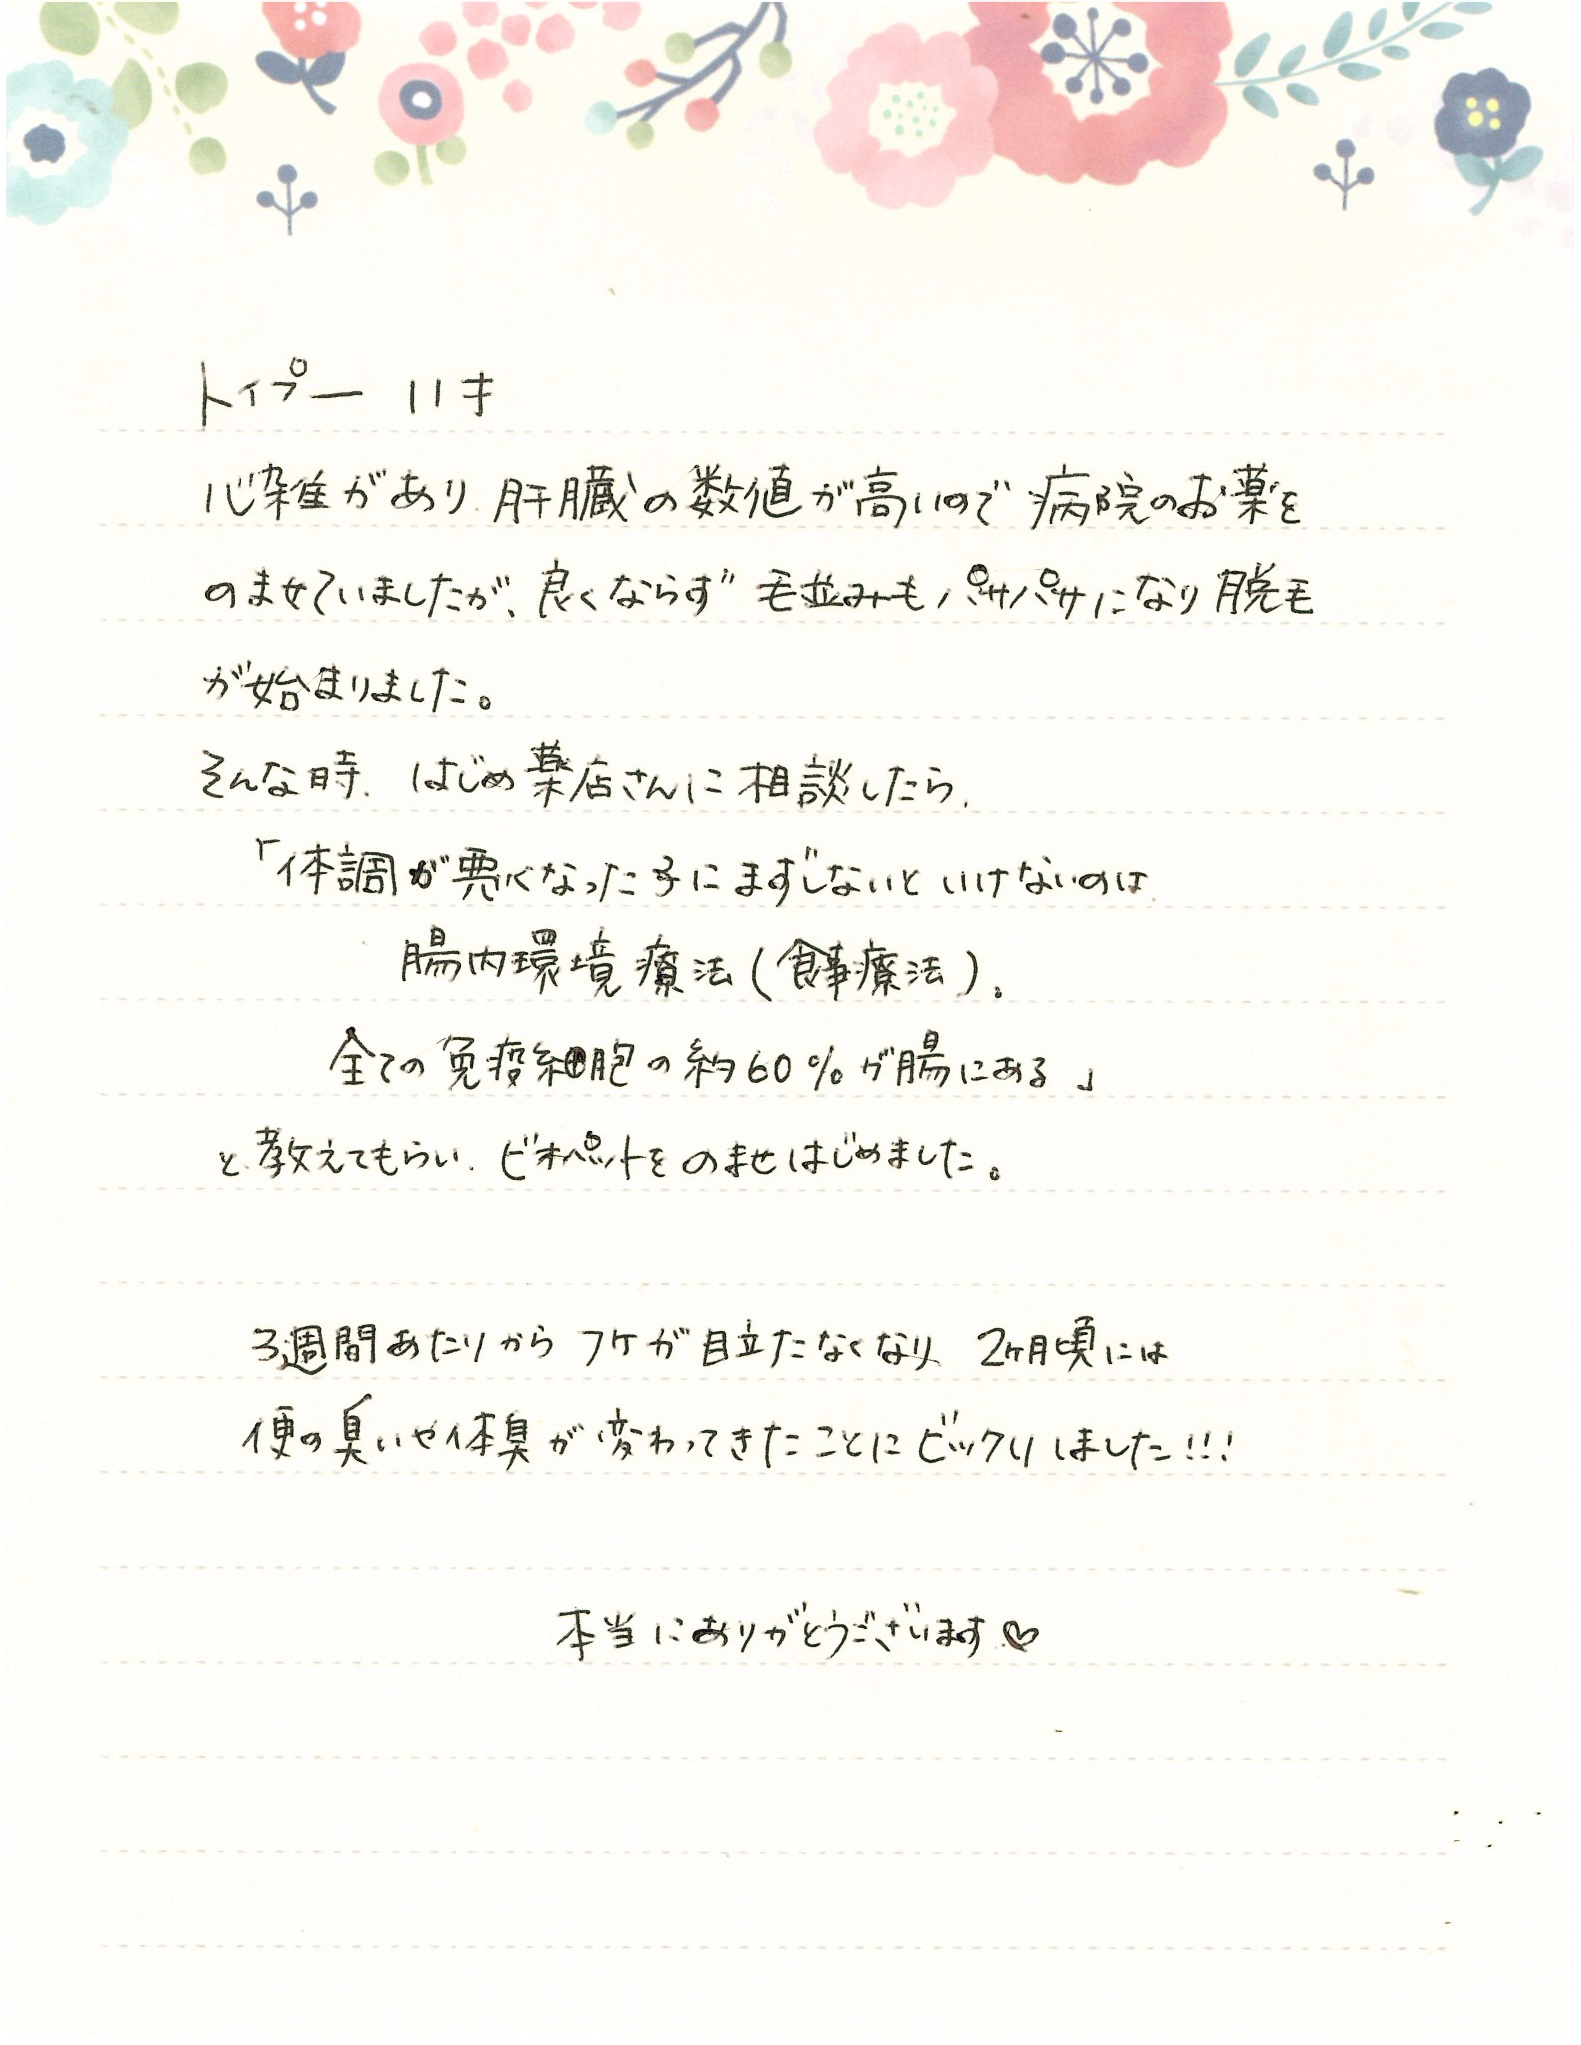 トイプー 11才
心雑があり、肝臓の数値が高いので 病院のお薬を
のませていましたが、良くならず 毛並みもパサパサになり 脱毛
が始まりました。
そんな時、はじめ薬店さんに相談したら、
「体調が悪くなった子にまずしないといけないのは
腸内環境療法(食事療法)。
全ての免疫細胞の約60%が腸にある」
と教えてもらい、ビオペットをのませはじめました。
3週間あたりからフケが目立たなくなり、2ヶ月頃には
便の臭いや体臭が変わってきたことにビックリしました!!!
本当にありがとうございます♡